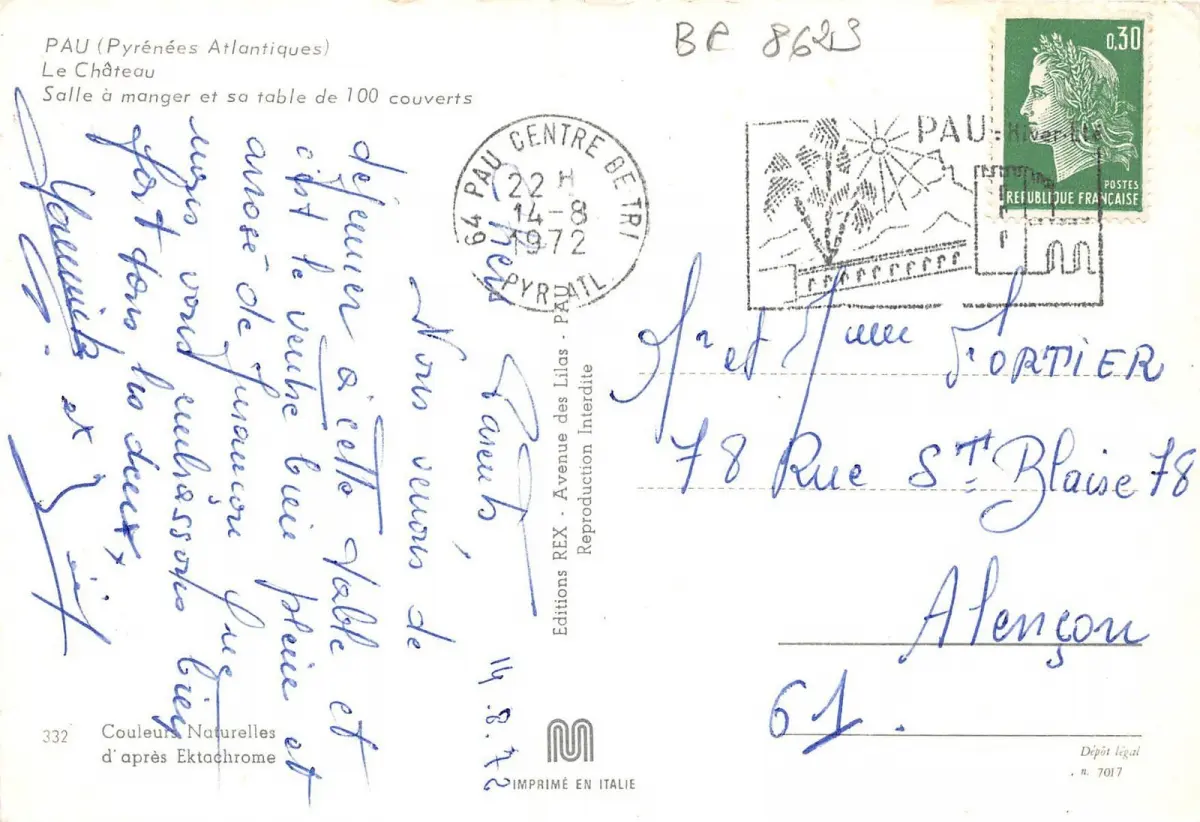 BR 8623
PAU (Pyrénées Atlantiques)
Le Château
Salle à manger et sa table de 100 couverts
0,30
POSTES
REPUBLIQUE FRANÇAISE
64 PAU CENTRE DE TRI
22 H
14-8
1972
PYR-ATL
PAU : Hiver-Eté
14.8.72
Chers Parents,
Nous venons de
déjeuner à cette table et
c'est le ventre bien plein et
arrosé de jurançon que
nous vous embrassons bien
fort tous les deux,
et
Mr et Mme FORTIER
78 Rue St Blaise 78
Alençon
61.
Editions REX - Avenue des Lilas - PAU
Reproduction Interdite
332
Couleurs Naturelles
d'après Ektachrome
IMPRIMÉ EN ITALIE
Dépôt légal
n. 7017